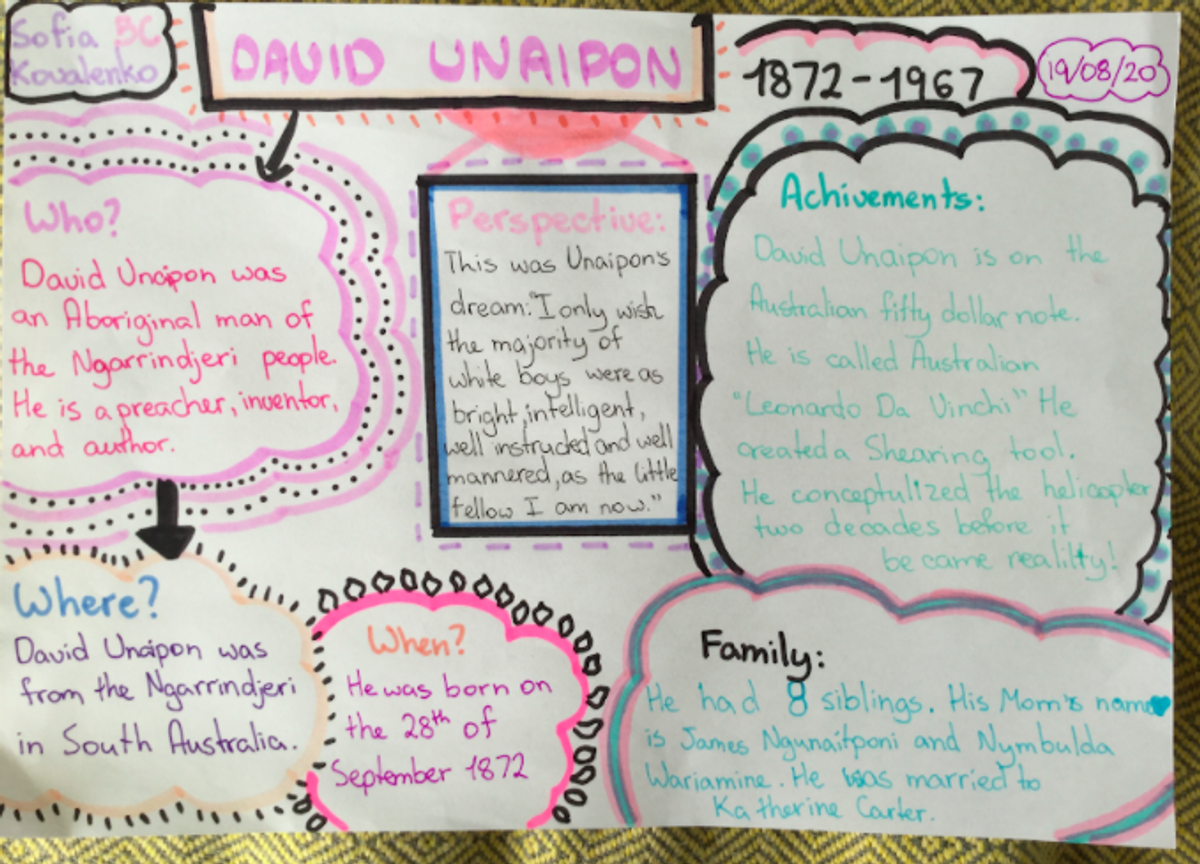 Sofia 3C
Kovalenko
DAVID UNAIPON
1872-1967
19/08/20
Who?
David Unaipon was
an Aboriginal man of
the Ngarrindjeri people.
He is a preacher, inventor,
and author.
Perspective:
This was Unaipon's
dream: "I only wish
the majority of
white boys were as
bright, intelligent,
well instructed and well
mannered, as the little
fellow I am now."
Achivements:
David Unaipon is on the
Australian fifty dollar note.
He is called Australian
"Leonardo Da Vinchi" He
created a Shearing tool.
He conceptulized the helicopter
two decades before it
be came realilty!
Where?
David Unaipon was
from the Ngarrindjeri
in South Australia.
When?
He was born on
the 28th of
September 1872
Family:
He had 8 siblings. His Mom's name
is James Ngunaitponi and Nymbulda
Wariamine. He was married to
Katherine Carter.